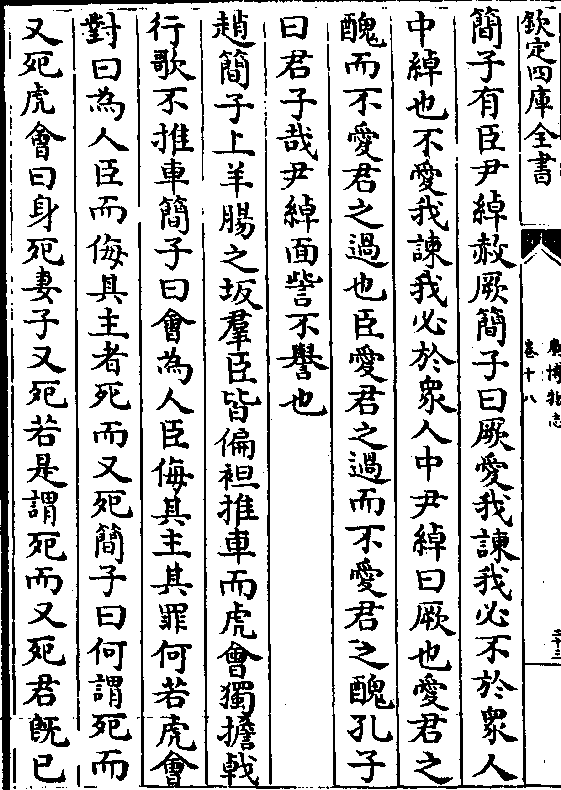 欽定四庫全書
廣博物志
卷十八
二十三
簡子有臣尹綽赦厥簡子曰厥愛我諫我必不於衆人
中綽也不愛我諫我必於衆人中尹綽曰厥也愛君之
醜而不愛君之過也臣愛君之過而不愛君之醜孔子
曰君子哉尹綽面訾不譽也
趙簡子上羊腸之坂羣臣皆偏袒推車而虎會獨擔戟
行歌不推車簡子曰會為人臣侮其主其罪何若虎會
對曰為人臣而侮其主者死而又死簡子曰何謂死而
又死虎會曰身死妻子又死若是謂死而又死君旣已